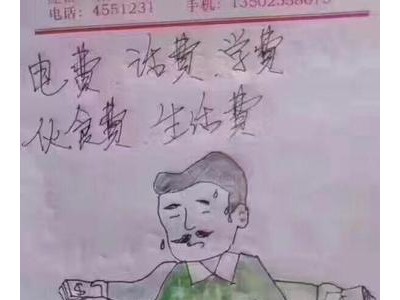 电话: 4551231 手机:
电费 话费 学费
伙食费 生活费
$